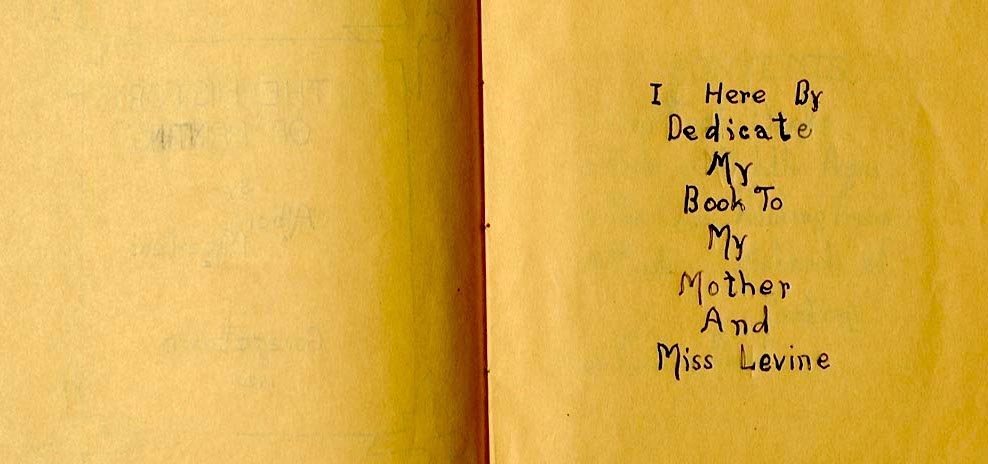 I Here By
Dedicate
My
Book To
My
Mother
And
Miss Levine